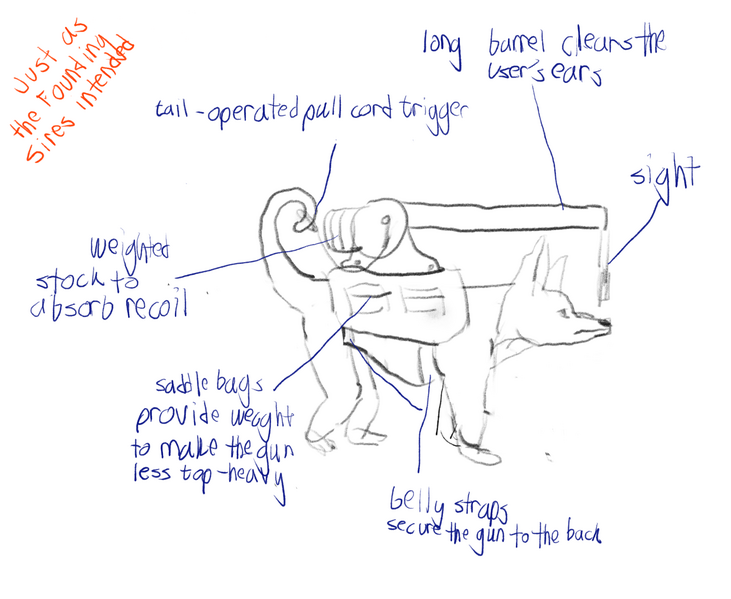 Just as
the Founding
Sires intended
long barrel clears the
user's ears
tail-operated pull cord trigger
sight
weighted
stock to
absorb recoil
saddle bags
provide weight
to make the gun
less top-heavy
belly straps
secure the gun to the back